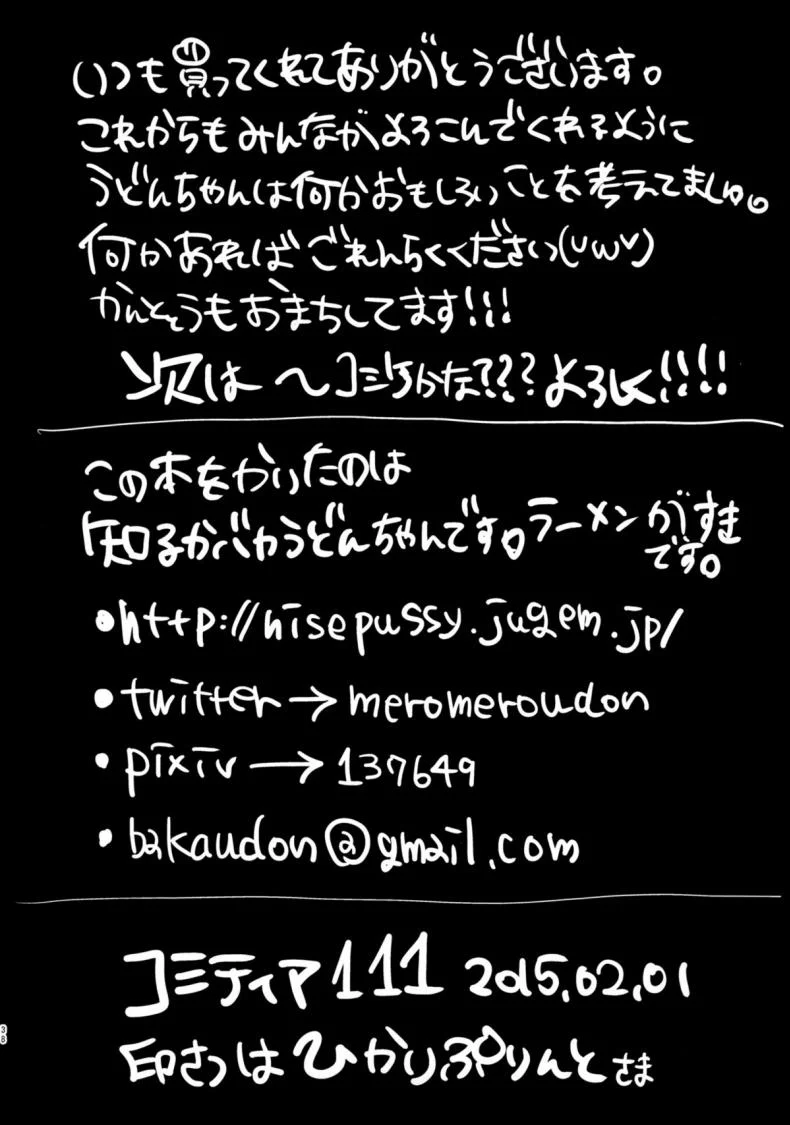 いつも買ってくれてありがとうございます。
これからもみんながよろこんでくれるように
うどんちゃんは何かおもしろいことを考えてましゅ。
何かあればごれんらくください(UωU)
かんそうもおまちしてます!!!
次は〜コミケかな???よろしく!!!!
この本をかいたのは
知るかバカうどんちゃんです。ラーメンがすき
です。
•http://nisepussy.jugem.jp/
•twitter→meromeroudon
•pixiv→137649
•bakaudon@gmail.com
コミティア111 2015.02.01
印さつはひかりぷりんとさま
38